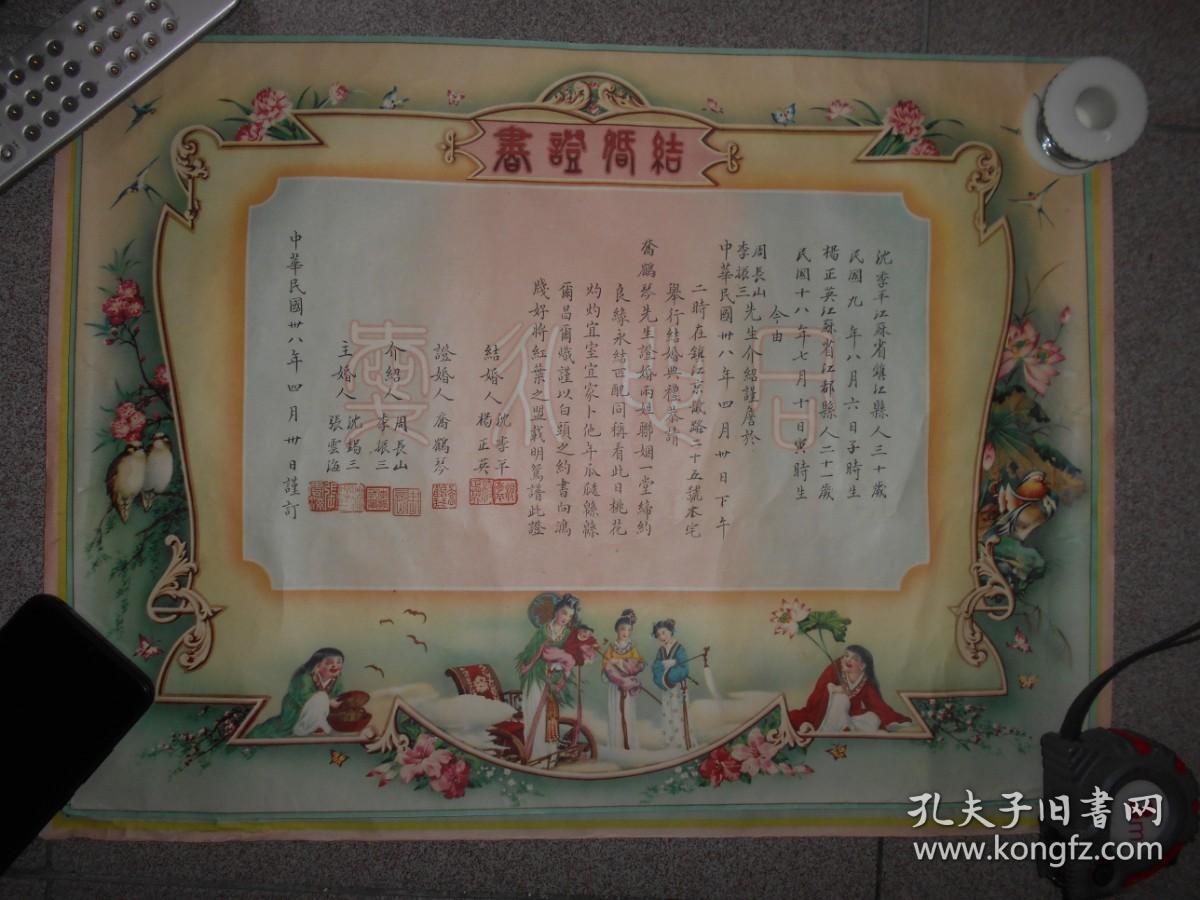 結婚證書
沈季平江蘇省鎮江縣人三十歲
民國九年八月六日子時生
楊正英江蘇省江都縣人二十一歲
民國十八年七月十日寅時生
今由
周長山
李振三先生介紹謹詹於
中華民國卅八年四月卅日下午
二時在鎮江京畿路二十五號本宅
舉行結婚典禮恭請
喬鶴琴先生證婚兩姓聯姻一堂締約
良緣永結匹配同稱看此日桃花
灼灼宜室宜家卜他年瓜瓞緜緜
爾昌爾熾謹以白頭之約書向鴻
牋好將紅葉之盟載明鴛譜此證
結婚人 沈季平
楊正英
證婚人 喬鶴琴
介紹人 周長山
李振三
主婚人 沈錫三
張雲海
中華民國卅八年四月卅日謹訂
孔夫子旧书网
www.kongfz.com